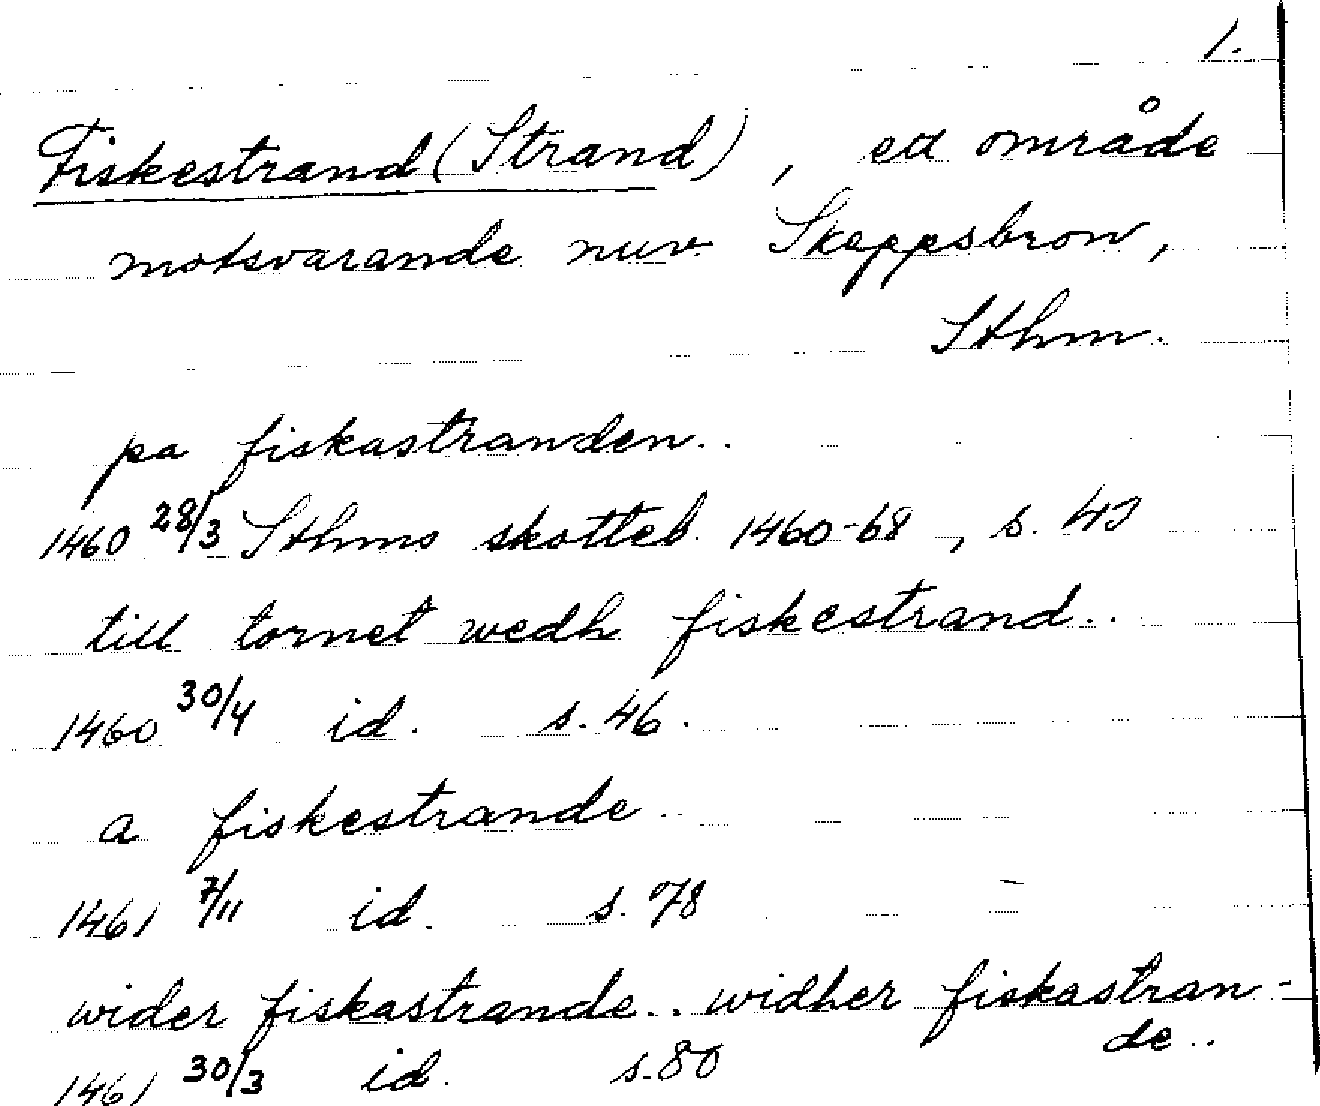 1.
Fiskestrand (Strand), ett område
motsvarande nuv. Skeppsbron,
Sthm.
pa fiskastranden..
1460 28/3 Sthms skotteb. 1460-68, s. 43
till tornet wedh fiskestrand..
1460 30/4 id. s. 46.
a fiskestrande..
1461 7/11 id. s. 78
wider fiskastrande.. widher fiskastran-
de..
1461 30/3 id. s. 80